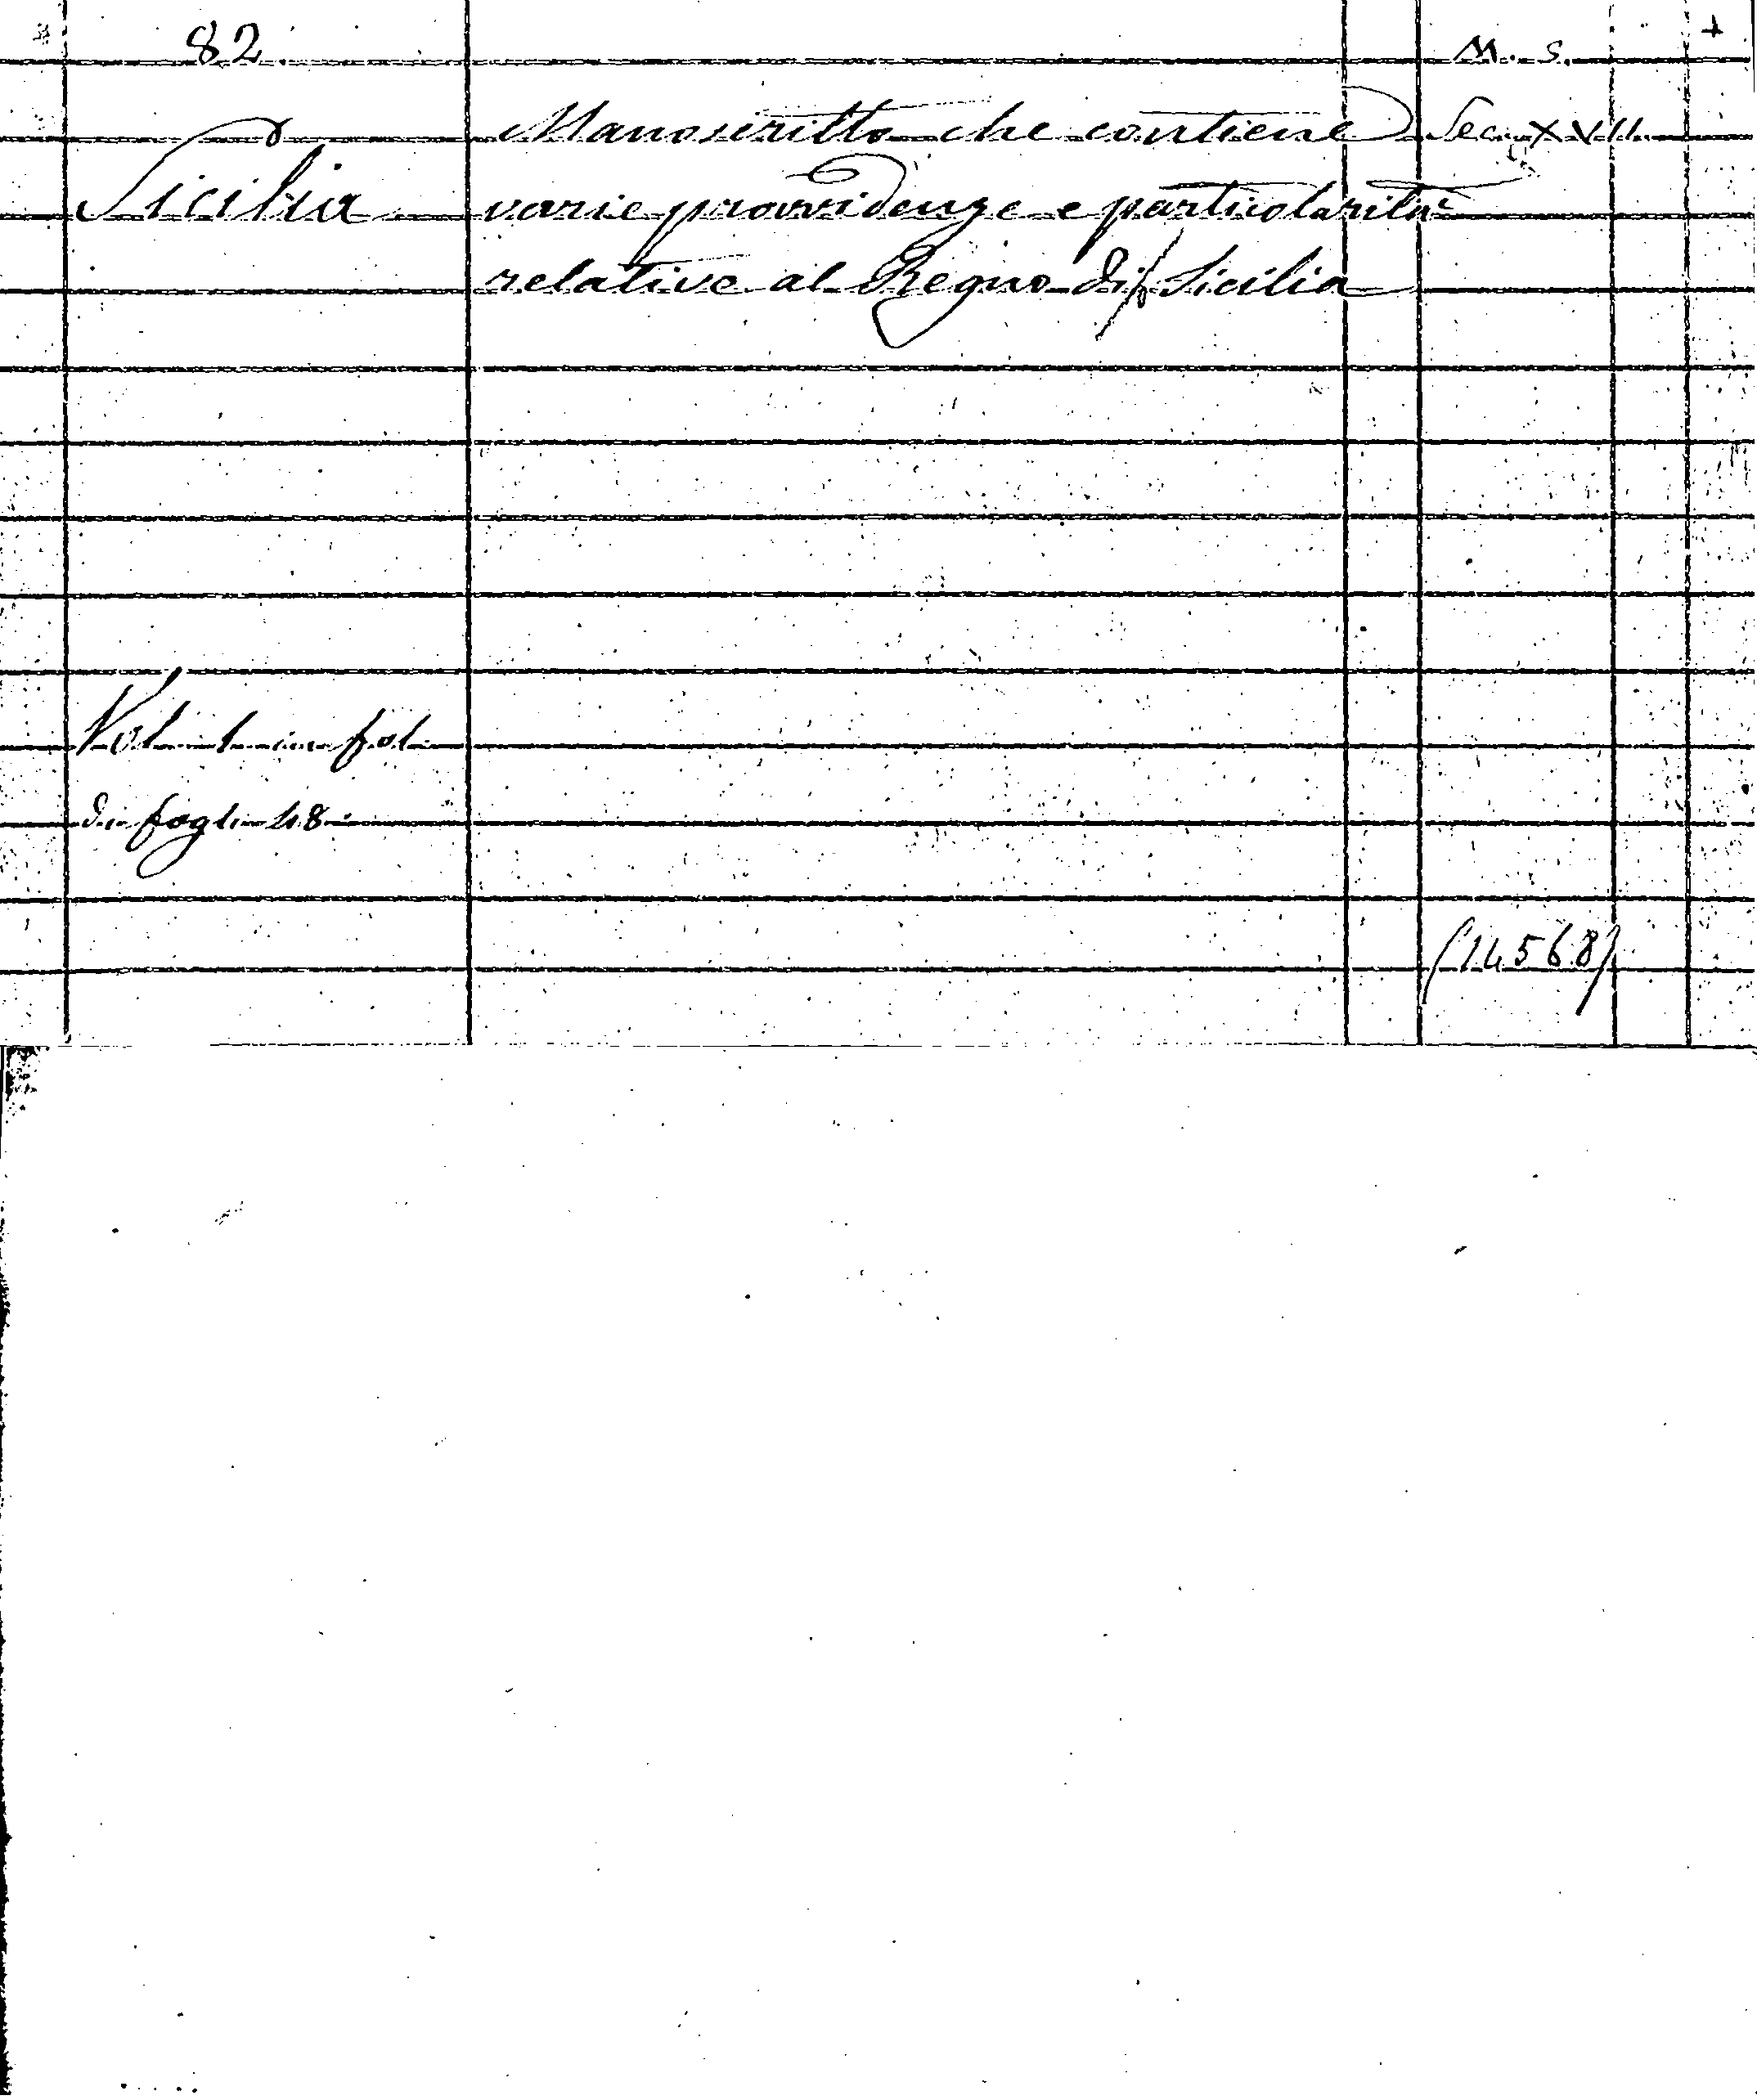 82. M. S. +
Manoscritto che contiene Sec. XVII.
Sicilia varie provvidenze e particolarità
relative al Regno di Sicilia
Vol. 1 in fol.
di fogli 48.
(14568)